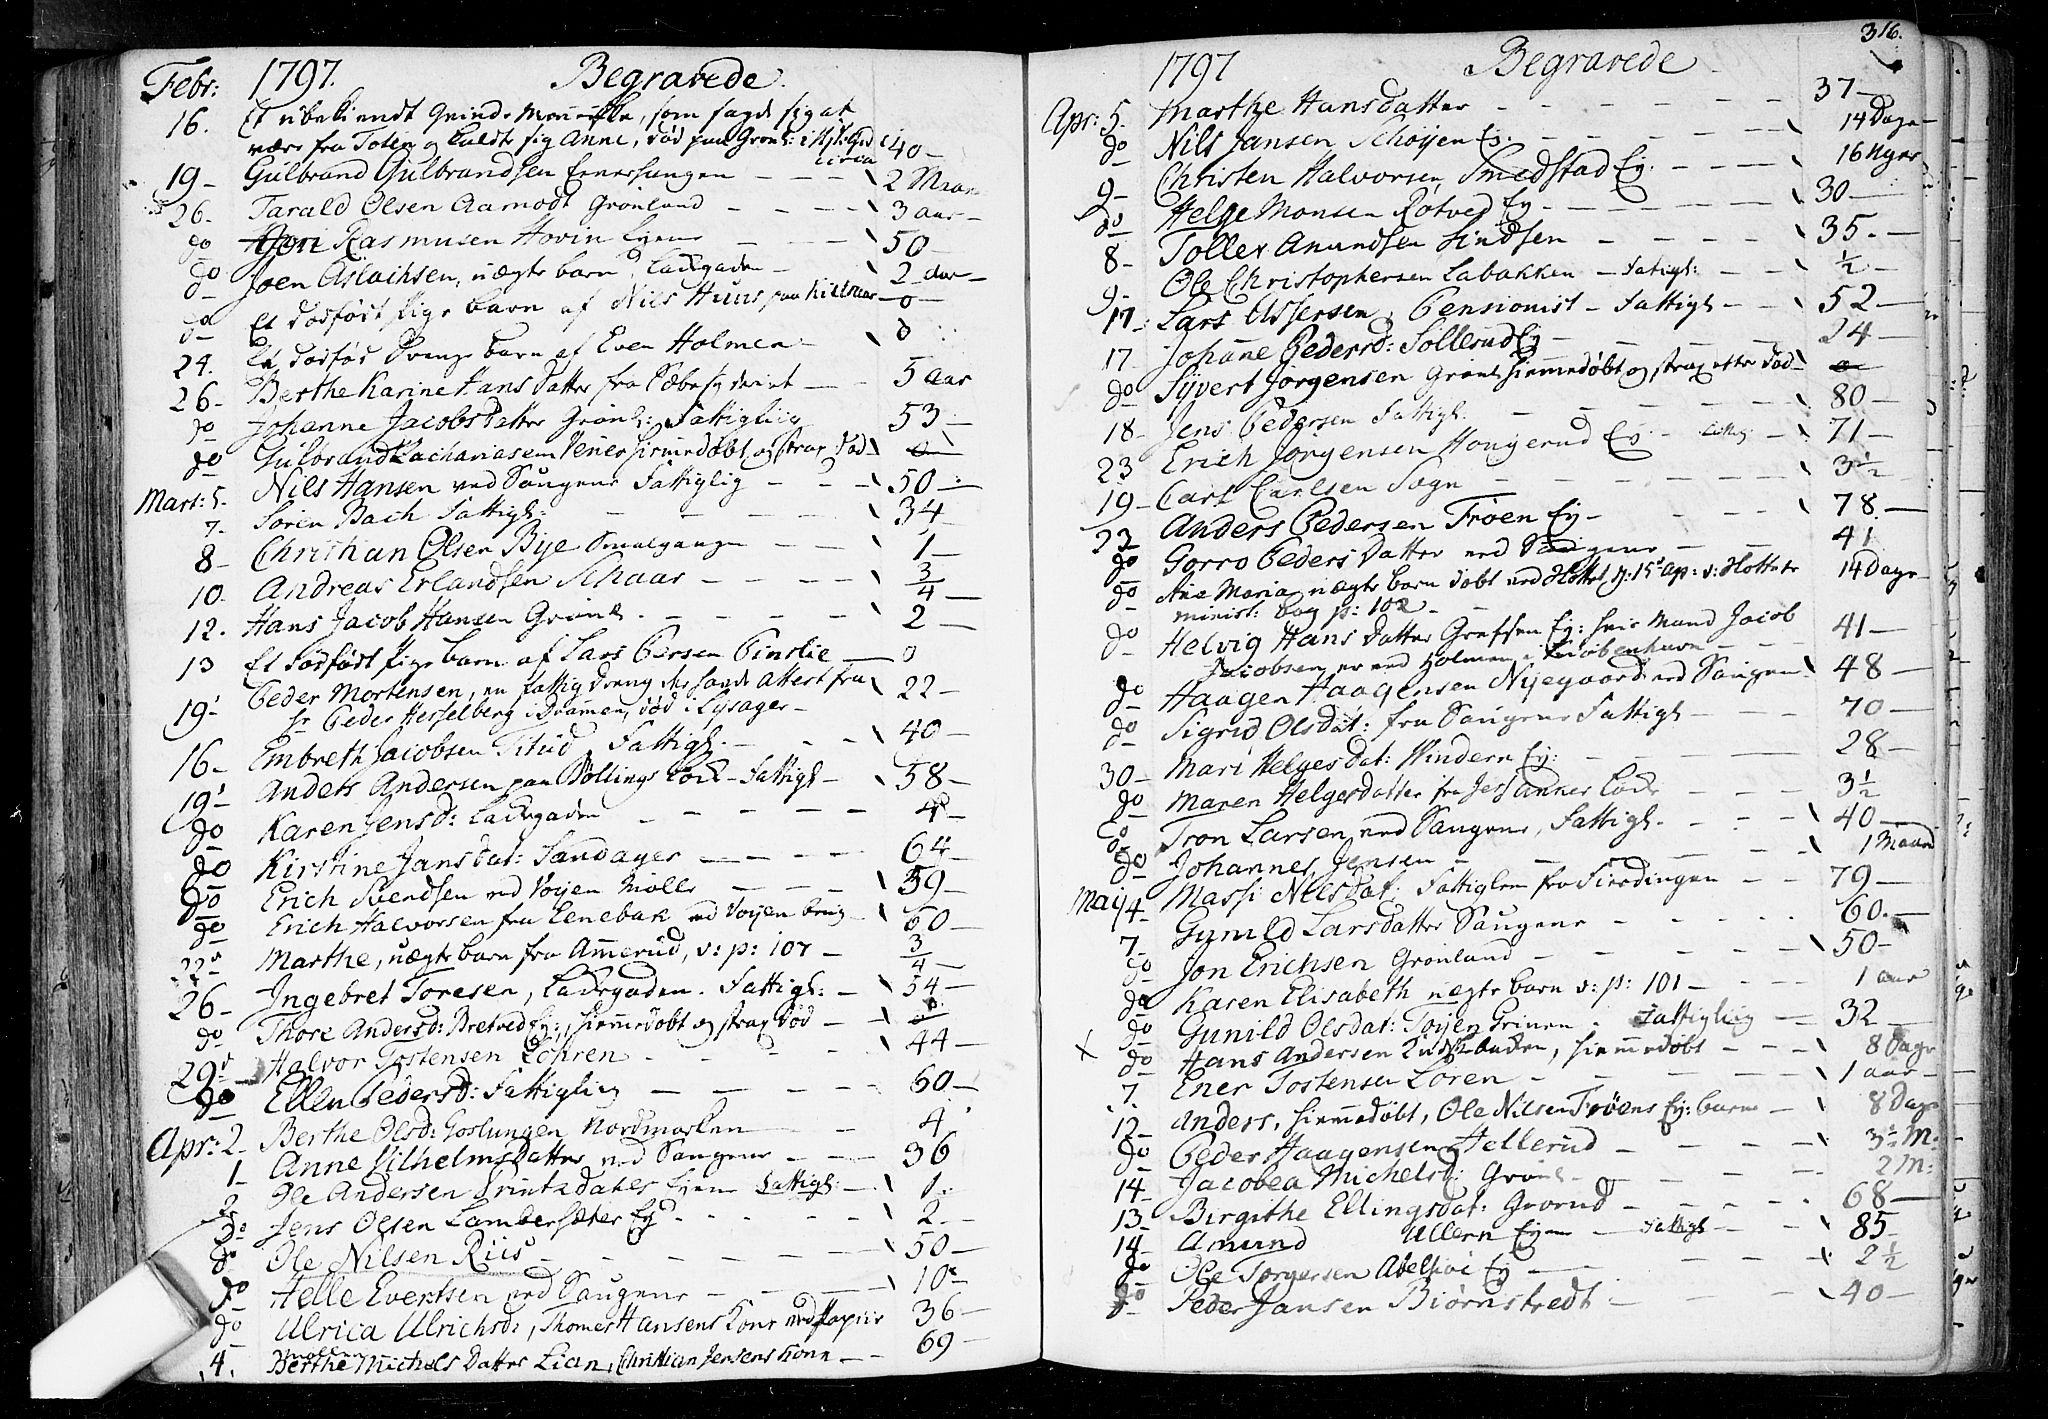 Febr: 1797. Begravede.
16. Et ubekiendt Qvinde Menniske, som sagde sig at
være fra Toten og kaldte sig Anne, død paa Grønl: circa 40 -
19 - Gulbrand Gulbrandsen - - - 2 Maan
26. Tarald Olsen Aamodt Grønland - - - 3 aar -
do Rasmusen Hovin Eyene - - 50 -
do Joen Aslachsen, uægte barn, Ladegaden - 2 aar -
do Et dødfødt Pige barn af Nils Huus paa - 0 -
24. Et dødfød Drenge barn af Even Holmen - 0
26 - Berthe Karine Hans Datter fra Sæbesyderiet - - 5 aar
do Johanne Jacobs Datter Grønl: Fattiglig 53 -
do Gulbrand Zachariasen hiemmedøbt og strax død 0
Mart: 5. Nils Hansen ved Saugene Fattiglig - - - 50 -
7. Søren Bach Fattigl. - - - 34 -
8 - Christian Olsen Bye - - - 1 -
10. Andreas Erlandsen Schaar - - - - 3/4 -
12. Hans Jacob Hansen Grønl. - - - - 2 -
13 Et dødfødt Pige barn af Lars Persen - 0
19 - Peder Mortensen, en fattig Dreng der havde Attest fra 22 -
Hr Peder Hesselberg i Drammen, død i Lysager -
16 - Embreth Jacobsen Fattigl. - - - 40 -
19 - Anders Andersen paa Bøllings Løck - Fattigl - 58 -
do Karen Jensd: Ladegaden - - - - 4 -
do Kirstine Jans Dat: Sandager - - - - 64 -
do Erich Svendsen ved Voyen Mølle - - - 59 -
do Erich Halvorsen fra Enebak ved Voyen brug - 60 -
22 Marthe, uægte barn fra Ammerud, v: p: 107 - 3/4 -
26 - Ingebret Toresen, Ladegaden. Fattigl: - 54 -
do Thore Andersd: Bretved Ey:, hiemmedøbt og strax død - 0
29 Halvor Tostensen Løhren - - - - 44 -
do Ellen Pedersd: Fattiglig - - - - 60 -
Apr: 2 - Berthe Olsd: Nordmarken - - 4
1 - Anne Vilhelms Datter ved Saugene - - - 36
2 Ole Andersen Eyene Fattigl: - 1.
do Jens Olsen Lambersæter Ey - - - - 2. -
do Ole Nilsen Riis - - - - 50 -
do Helle Evertsen ved Saugene - - - - 10 -
do Ulrica Ulrichsd:, Thomes Hansens Kone ved Papiir 36 -
møllen
4. Berthe Michels Datter Lian, Christian Jensens Kone - - 69
316.
1797 Begravede
Apr: 5. Marthe Hansdatter - - - - 37 -
do Nils Jansen Schøyen Ey. - - - - 14 Dage -
9 - Christen Halvorsen, Smedstad Ey. - - - 16 Uger
do Helge Monsen Rotved Ey - - - - 30 -
8 - Toller Amundsen - - - - 35. -
9 - Ole Christophersen Labakken - Fatigl: - - 1/2 -
17 - Lars Assersen, Pensionist - Fattigl - - 52 -
17 - Johanne Pedersd: Sollerud Ey - - - 24 -
do Syvert Jørgensen Grønl hiemmedøbt og strax efter død - 0
18 - Jens Pedersen Fattigl. - - - - 80 -
23 Erich Jørgensen Hougerud Ey - fattig - 71 -
19 - Carl Carlsen Sogn - - - - 3 1/2
22 Anders Pedersen Trøen Ey - - - - 78 -
do Gorro Peders Datter ved Saugene - - 41
do Ane Maria, uægte barn døbt ved d: 15 Ap: v: 14 Dage -
minist: bog p: 102 -
do Helvig Hans Datter Grefsen Ey: hvis Mand Jacob 41 -
Jacobsen er ved Holmen i Kiøbenhavn - -
do Haagen Haagensen Nyegaard ved Saugene 48 -
do Sigrid Olsdat: fra Saugene Fattigl - - - 70 -
30 - Mari Helges Dat: Vindern Ey: - - - 28 -
do Maren Helgesdatter fra Løcke - - - 3 1/2
do Tron Larsen ved Saugene, Fattigl. - - - 40 -
do Johannes Jensen - - - - 1 Maaned
May 4 - Massi Nilsdat: Fattiglem fra Fierdingen - - 79 -
7 - Gunild Larsdatter Saugene - - - - 60. -
do Jon Erichsen Grønland - - - - 50 -
do Karen Elisabeth uægte barn v: p: 101 - - - 1 aar
do Gunild Olsdat: Tøyen - Fattiglig - 32 -
X do Hans Andersen, hiemmedøbt - - - 8 Dage
7. Ener Tostensen Løren - - - - 1 aar -
12 - Anders, hiemmedøbt, Ole Nilsen Trøens Ey: barn - 8 Dage
do Peder Haagensen Hellerud - - - - 3 1/2 M:
14 - Jacobea Michelsd: Grønl - - - - 2 M:
13 - Birgithe Ellingsdat: Grorud - - - - 68 -
14 - Amund Ullern Eyene - Fattigl - - 85 -
do Ole Torgersen Ey - - - - 2 1/2
do Peder Jansen Biørnstredt - - - - 40 -